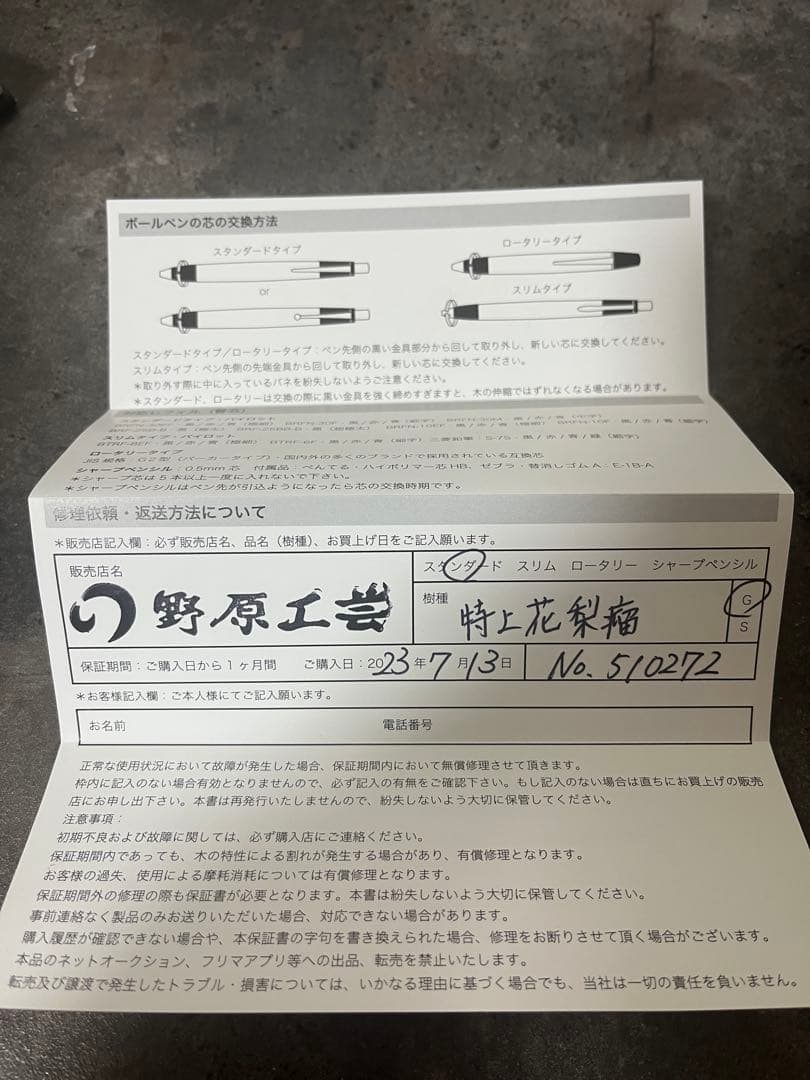 ボールペンの芯の交換方法
スタンダードタイプ
ロータリータイプ
or
スリムタイプ
スタンダードタイプ／ロータリータイプ：ペン先側の黒い金具部分から回して取り外し、新しい芯に交換してください。
スリムタイプ：ペン先側の先端金具から回して取り外し、新しい芯に交換してください。
＊取り外す際に中に入っているバネを紛失しないようご注意ください。
＊スタンダード、ロータリーは交換の際に黒い金具を強く締めすぎますと、木の伸縮ではずれなくなる場合があります。
スタンダードタイプ・パイロット
スリムタイプ・パイロット
ロータリータイプ
JIS規格：G2型（パーカータイプ）・国内外の多くのブランドで採用されている互換芯
シャープペンシル：0.5mm芯　付属品：ぺんてる・ハイポリマー芯HB、ゼブラ・替消しゴムA：E-1B-A
＊シャープ芯は5本以上一度に入れないで下さい。
＊シャープペンシルはペン先が引込ようになったら芯の交換時期です。
修理依頼・返送方法について
＊販売店記入欄：必ず販売店名、品名（樹種）、お買上げ日をご記入願います。
販売店名
スタンダード　スリム　ロータリー　シャープペンシル
野原工芸
樹種
特上花梨瘤
G
S
保証期間：ご購入日から1ヶ月間　ご購入日：2023年7月13日
No. 510272
＊お客様記入欄：ご本人様にてご記入願います。
お名前　電話番号
正常な使用状況において故障が発生した場合、保証期間内において無償修理させて頂きます。
枠内に記入のない場合有効となりませんので、必ず記入の有無をご確認下さい。もし記入のない場合は直ちにお買上げの販売
店にお申し出下さい。本書は再発行いたしませんので、紛失しないよう大切に保管してください。
注意事項：
初期不良および故障に関しては、必ず購入店にご連絡ください。
保証期間内であっても、木の特性による割れが発生する場合があり、有償修理となります。
お客様の過失、使用による摩耗消耗については有償修理となります。
保証期間外の修理の際も保証書が必要となります。本書は紛失しないよう大切に保管してください。
事前連絡なく製品のみお送りいただいた場合、対応できない場合があります。
購入履歴が確認できない場合や、本保証書の字句を書き換えられた場合、修理をお断りさせて頂く場合がございます。
本品のネットオークション、フリマアプリ等への出品、転売を禁止いたします。
転売及び譲渡で発生したトラブル・損害については、いかなる理由に基づく場合でも、当社は一切の責任を負いません。